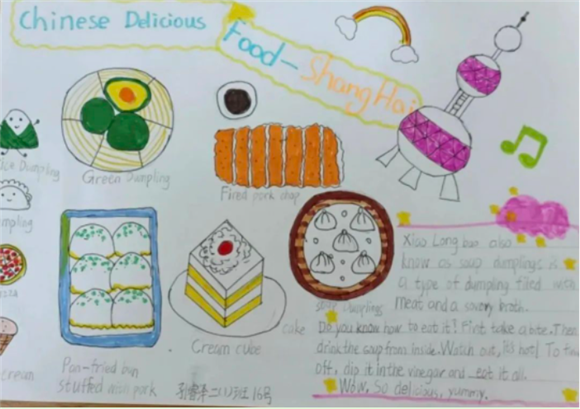 Chinese Delicious
Food-ShangHai
Dumpling
Green Dumpling
Fired pork chop
mpling
Xiao Long bao also
know as soup dumplings is
a type of dumpling filled with
meat and a savory broth.
soup dumplings
Do you know how to eat it! First take a bite. Then
drink the soup from inside. Watch out, it's hot! To
off, dip it in the vinegar and eat it all.
Wow, So delicious, yummy.
cake
Cream cube
cream
Pan-fried bun
stuffed with pork
二(1)班 16号